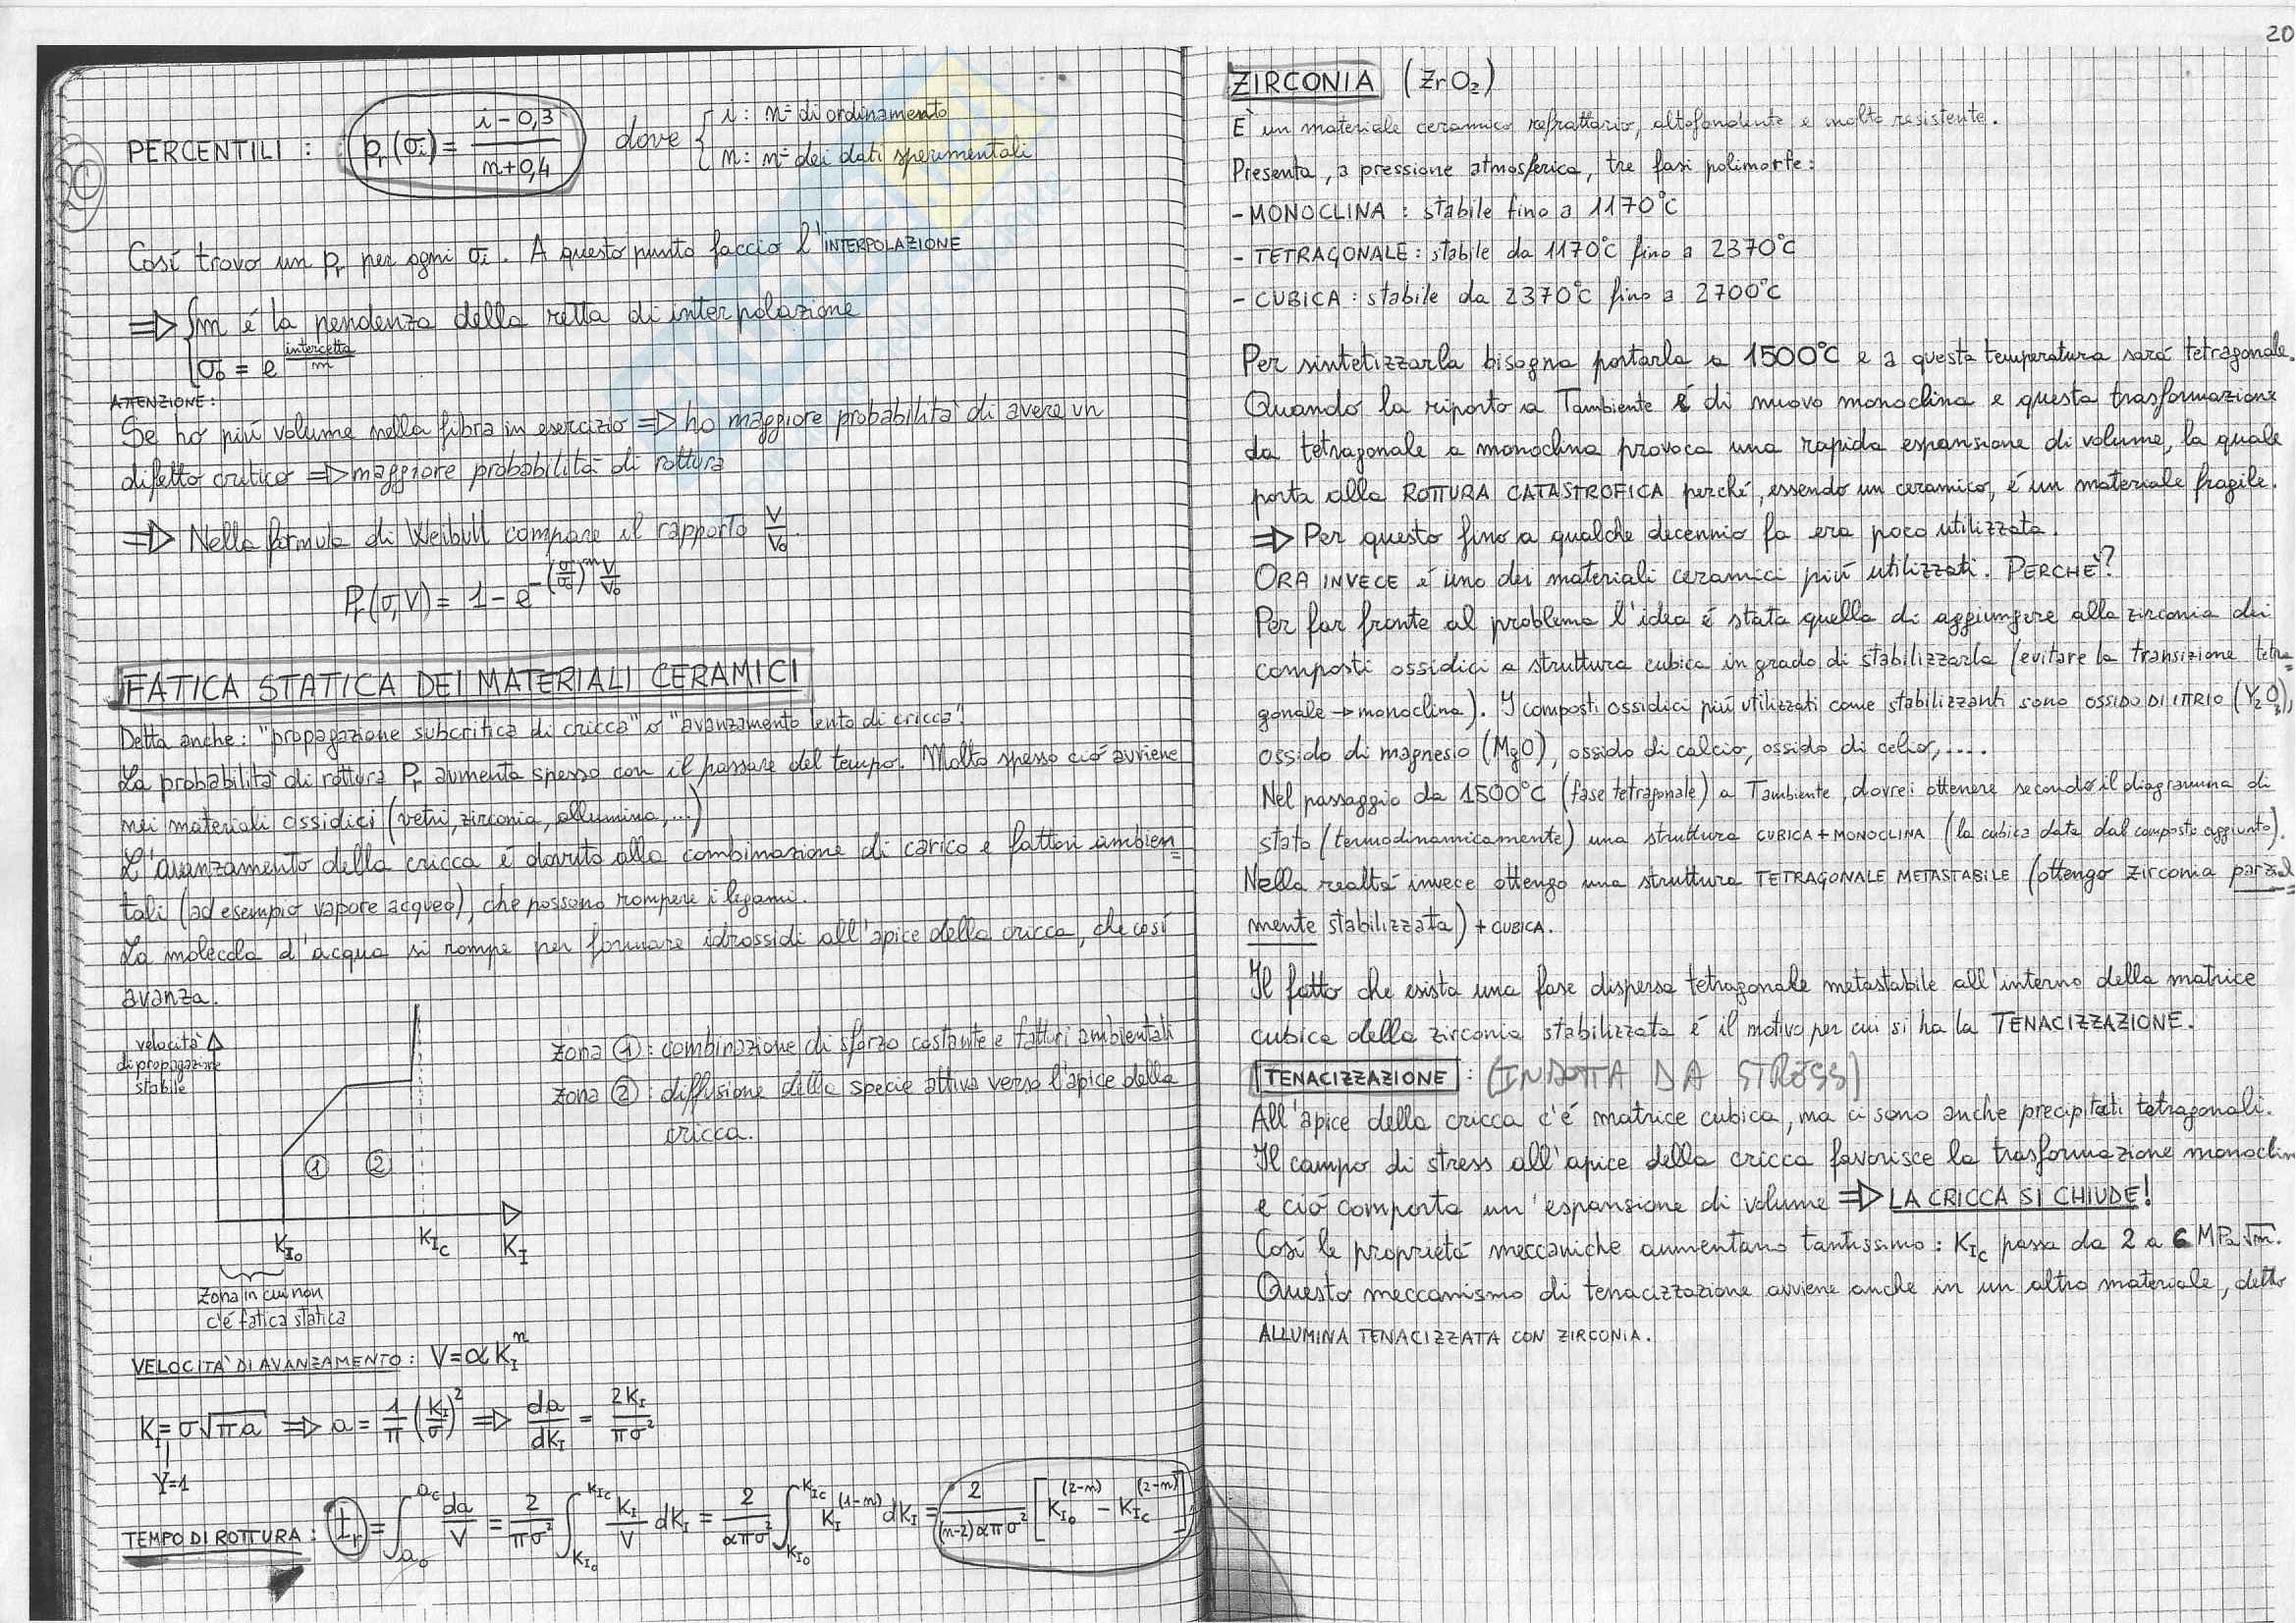 PERCENTILI : pr(σi) = (i-0,3)/(n+0,4) dove { i : n= di ordinamento
n : n= dei dati sperimentali
Così trovo un pr per ogni σi. A questo punto faccio l'INTERPOLAZIONE
⇒ { m é la pendenza della retta di interpolazione
σ0 = e^(intercetta/m)
ATTENZIONE:
Se ho piú volume nella fibra in esercizio ⇒ ho maggiore probabilità di avere un
difetto critico ⇒ maggiore probabilità di rottura
⇒ Nella formula di Weibull compare il rapporto V/V0.
Pr(σ,V) = 1 - e^(-(σ/σ0)^m V/V0)
FATICA STATICA DEI MATERIALI CERAMICI
Detta anche: "propagazione subcritica di cricca" o "avanzamento lento di cricca".
La probabilità di rottura Pr aumenta spesso con il passare del tempo. Molto spesso ció avviene
nei materiali ossidici (vetri, zirconia, allumina, ...)
L'avanzamento della cricca é dovuto alla combinazione di carico e fattori ambien=
tali (ad esempio vapore acqueo), che possono rompere i legami.
La molecola d'acqua si rompe per formare idrossidi all'apice della cricca, che cosí
avanza.
velocità
di propagazione
stabile
zona ① : combinazione di sforzo costante e fattori ambientali
zona ② : diffusione della specie attiva verso l'apice della
cricca.
① ②
KI0 KIc KI
Zona in cui non
c'é fatica statica
VELOCITA' DI AVANZAMENTO : V = α KI^n
KI = σ√(πa) ⇒ a = 1/π (KI/σ)^2 ⇒ da/dKI = 2KI/(πσ^2)
Y=1
TEMPO DI ROTTURA : tr = ∫_{a0}^{ac} da/V = 2/(πσ^2) ∫_{KI0}^{KIc} KI/V dKI = 2/(απσ^2) ∫_{KI0}^{KIc} KI^(1-n) dKI = 2/((n-2)απσ^2) [KI0^(2-n) - KIc^(2-n)]
20
ZIRCONIA (ZrO2)
È un materiale ceramico refrattario, altofondente e molto resistente.
Presenta, a pressione atmosferica, tre fasi polimorfe:
- MONOCLINA : stabile fino a 1170°C
- TETRAGONALE : stabile da 1170°C fino a 2370°C
- CUBICA : stabile da 2370°C fino a 2700°C
Per sintetizzarla bisogna portarla a 1500°C e a questa temperatura sará tetragonale.
Quando la riporto a Tambiente é di nuovo monoclina e questa trasformazione
da tetragonale a monoclina provoca una rapida espansione di volume, la quale
porta alla ROTTURA CATASTROFICA perché, essendo un ceramico, é un materiale fragile.
⇒ Per questo fino a qualche decennio fa era poco utilizzata.
ORA INVECE é uno dei materiali ceramici piú utilizzati. PERCHÈ?
Per far fronte al problema l'idea é stata quella di aggiungere alla zirconia dei
composti ossidici a struttura cubica in grado di stabilizzarla (evitare la transizione tetra=
gonale → monoclina). I composti ossidici piú utilizzati come stabilizzanti sono OSSIDO DI ITTRIO (Y2O3),
ossido di magnesio (MgO), ossido di calcio, ossido di celio, ....
Nel passaggio da 1500°C (fase tetragonale) a Tambiente, dovrei ottenere secondo il diagramma di
stato (termodinamicamente) una struttura CUBICA + MONOCLINA (la cubica data dal composto aggiunto).
Nella realtá invece ottengo una struttura TETRAGONALE METASTABILE (ottengo zirconia parzial=
mente stabilizzata) + CUBICA.
Il fatto che esista una fase dispersa tetragonale metastabile all'interno della matrice
cubica della zirconia stabilizzata é il motivo per cui si ha la TENACIZZAZIONE.
TENACIZZAZIONE : (INDOTTA DA STRESS)
All'apice della cricca c'é matrice cubica, ma ci sono anche precipitati tetragonali.
Il campo di stress all'apice della cricca favorisce la trasformazione monoclin
e ció comporta un'espansione di volume ⇒ LA CRICCA SI CHIUDE!
Cosí le proprietá meccaniche aumentano tantissimo : KIc passa da 2 a 6 MPa√m.
Questo meccanismo di tenacizzazione avviene anche in un altro materiale, detto
ALLUMINA TENACIZZATA CON ZIRCONIA.